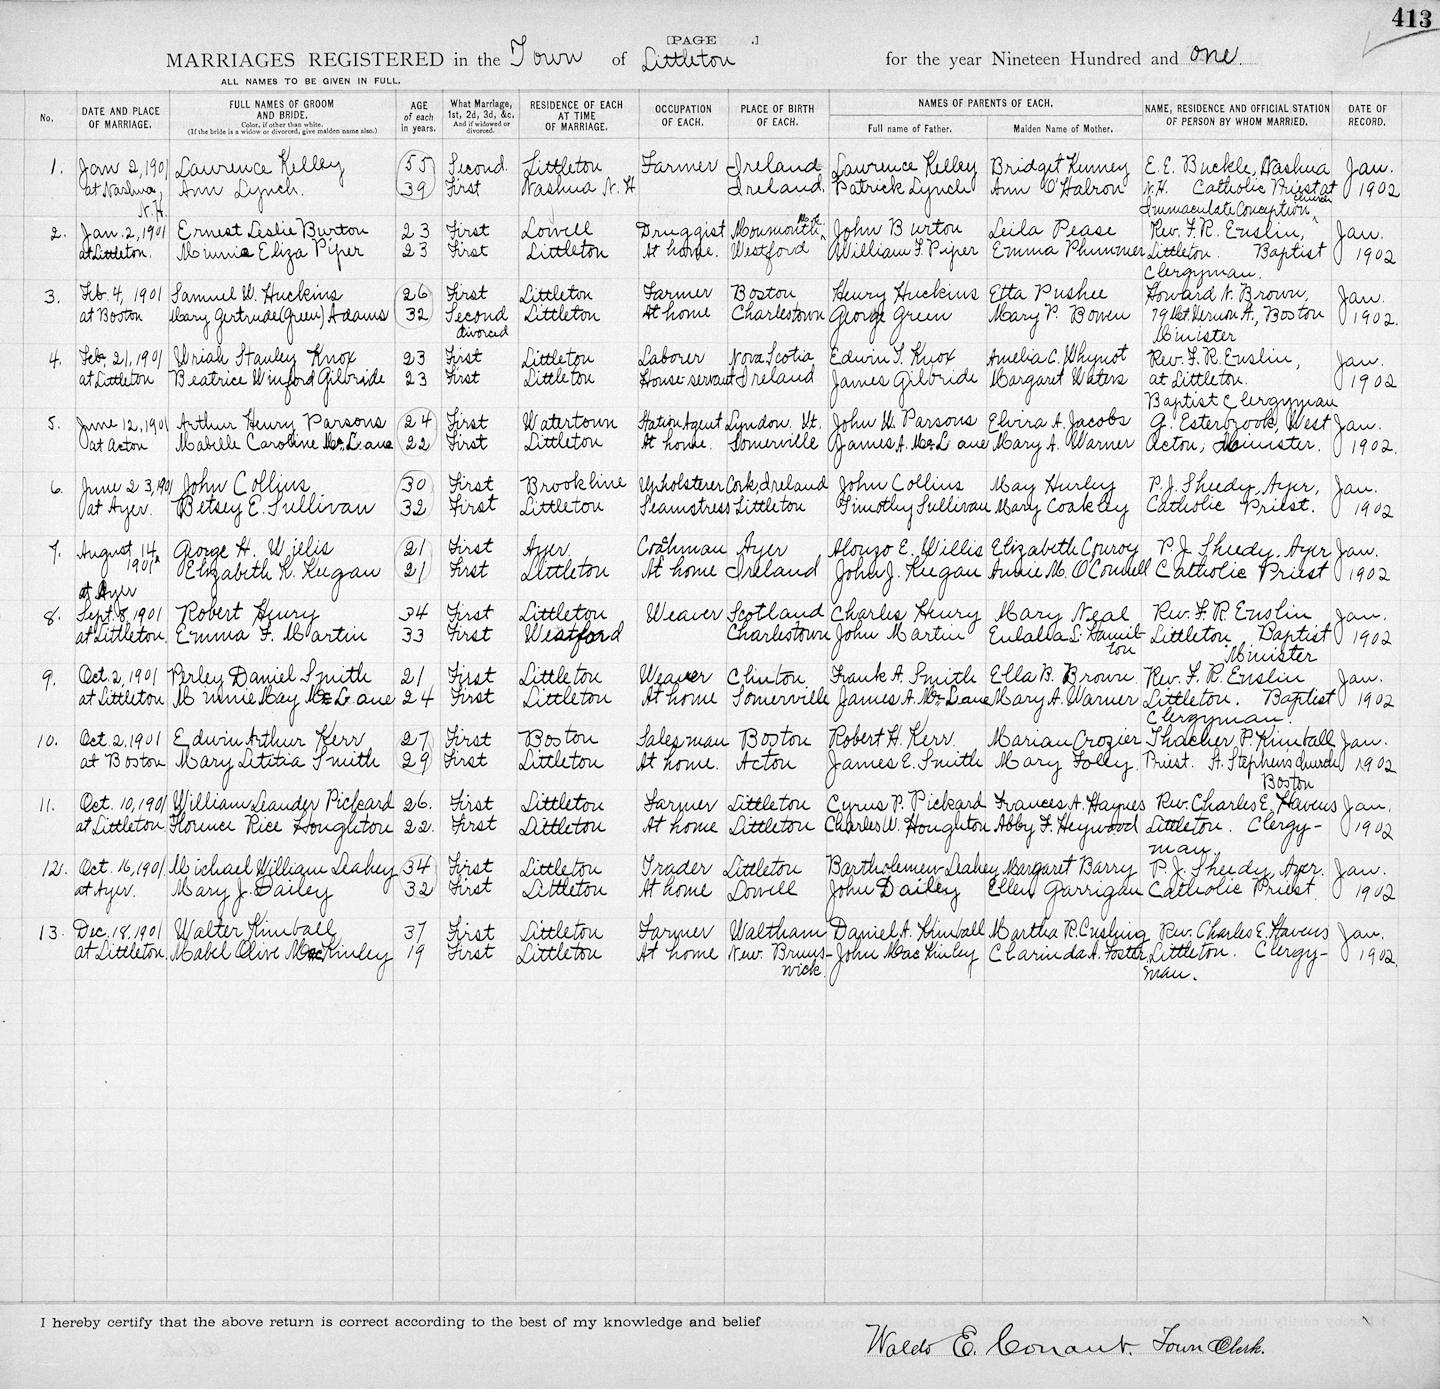 413
[PAGE .]
MARRIAGES REGISTERED in the Town of Littleton for the year Nineteen Hundred and one.
ALL NAMES TO BE GIVEN IN FULL.
No. DATE AND PLACE OF MARRIAGE. FULL NAMES OF GROOM AND BRIDE. Color, if other than white. (If the bride is a widow or divorced, give maiden name also.) AGE of each in years. What Marriage, 1st, 2d, 3d, &c. And if widowed or divorced. RESIDENCE OF EACH AT TIME OF MARRIAGE. OCCUPATION OF EACH. PLACE OF BIRTH OF EACH. NAMES OF PARENTS OF EACH. Full name of Father. Maiden Name of Mother. NAME, RESIDENCE AND OFFICIAL STATION OF PERSON BY WHOM MARRIED. DATE OF RECORD.
1. Jan 2, 1901 Lawrence Kelley 55 Second Littleton Farmer Ireland Lawrence Kelley Bridget Kenney E. E. Buckle, Nashua Jan.
at Nashua, Ann Lynch. 39 First Nashua N. H Ireland. Patrick Lynch Ann O'Halron N.H. Catholic Priest at 1902
N.H. Immaculate Conception church
2. Jan. 2, 1901 Ernest Leslie Burton 23 First Lowell Druggist Monmouth Me. John Burton Leila Pease Rev. F. R. Enslin, Jan.
at Littleton. Minnie Eliza Piper 23 First Littleton At home. Westford William F. Piper Emma Plummer Littleton. Baptist 1902
Clergyman.
3. Feb. 4, 1901 Samuel W. Huckins 26 First Littleton Farmer Boston Henry Huckins Etta Pushee Howard N. Brown, Jan.
at Boston Mary Gertrude (Green) Adams 32 Second Littleton At home Charlestown George Green Mary P. Bowen 79 Mt. Vernon A., Boston 1902.
divorced Minister
4. Feb. 21, 1901 Uriah Stanley Knox 23 First Littleton Laborer Nova Scotia Edwin T. Knox Amelia C. Whynot Rev. F. R. Enslin, Jan.
at Littleton Beatrice Winford Gilbride 23 First Littleton House servant Ireland James Gilbride Margaret Waters at Littleton. 1902
Baptist Clergyman
5. June 12, 1901 Arthur Henry Parsons 24 First Watertown Station Agent Lyndon Vt. John W. Parsons Elvira A. Jacobs G. Esterbrook, West Jan.
at Acton Mabelle Caroline McLane 22 First Littleton At home. Somerville James A. McLane Mary A. Warner Acton, Minister. 1902.
6. June 23, 1901 John Collins 30 First Brookline Upholsterer Cork, Ireland John Collins May Hurley P. J. Sheedy, Ayer, Jan.
at Ayer. Betsey E. Sullivan 32 First Littleton Seamstress Littleton Timothy Sullivan Mary Coakley Catholic Priest. 1902
7. August 14th George H. Willis 21 First Ayer Coachman Ayer Alonzo E. Willis Elizabeth Conroy P. J. Sheedy, Ayer Jan.
1901 Elizabeth R. Keegan 21 First Littleton At home Ireland John J. Keegan Annie M. O'Connell Catholic Priest 1902
at Ayer
8. Sept. 8, 1901 Robert Henry 34 First Littleton Weaver Scotland Charles Henry Mary Neal Rev. F. R. Enslin Jan.
at Littleton, Emma F. Martin 33 First Westford Charlestown John Martin Eulalia S. Hamil- Littleton Baptist 1902
ton Minister
9. Oct. 2, 1901 Perley Daniel Smith 21 First Littleton Weaver Clinton Frank A. Smith Ella B. Brown Rev. F. R. Enslin Jan.
at Littleton Minnie May McLane 24 First Littleton At home Somerville James A. McLane Mary A. Warner Littleton. Baptist 1902
Clergyman.
10. Oct. 2, 1901 Edwin Arthur Kerr 27 First Boston Salesman Boston Robert H. Kerr Marian Crozier Thacher P. Kimball Jan.
at Boston Mary Letitia Smith 29 First Littleton At home. Acton James E. Smith Mary Folly Priest. St. Stephens Church 1902
Boston
11. Oct. 10, 1901 William Leander Pickard 26. First Littleton Farmer Littleton Cyrus P. Pickard Frances A. Haynes Rev. Charles E. Havens Jan.
at Littleton Florence Rice Houghton 22. First Littleton At home Littleton Charles W. Houghton Abby F. Heywood Littleton. Clergy- 1902
man.
12. Oct. 16, 1901 Michael William Leahey 34 First Littleton Trader Littleton Bartholemew Leahey Margaret Barry P. J. Sheedy, Ayer. Jan.
at Ayer. Mary J. Dailey 32 First Littleton At home Lowell John Dailey Ellen Garrigan Catholic Priest 1902
13. Dec. 18, 1901 Walter Kimball 37 First Littleton Farmer Waltham Daniel A. Kimball Martha R. Cushing Rev. Charles E. Havens Jan.
at Littleton Mabel Olive MacKinley 19 First Littleton At home New Bruns- John MacKinley Clarinda A. Foster Littleton. Clergy- 1902.
wick man.
I hereby certify that the above return is correct according to the best of my knowledge and belief
Waldo E. Conant. Town Clerk.